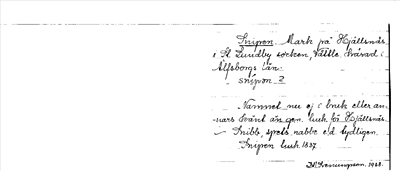 Snipen. Mark på Hjällsnäs
i St. Lundby socken, Vättle härad i
Älfsborgs län.
snipɔn 2
Namnet nu ej i bruk eller an-
nars känt än gen. bruk för Hjällsnäs
– Snibb, spets, nabbe e.d. tydligen.
Snipen bruk. 1837.
1928.